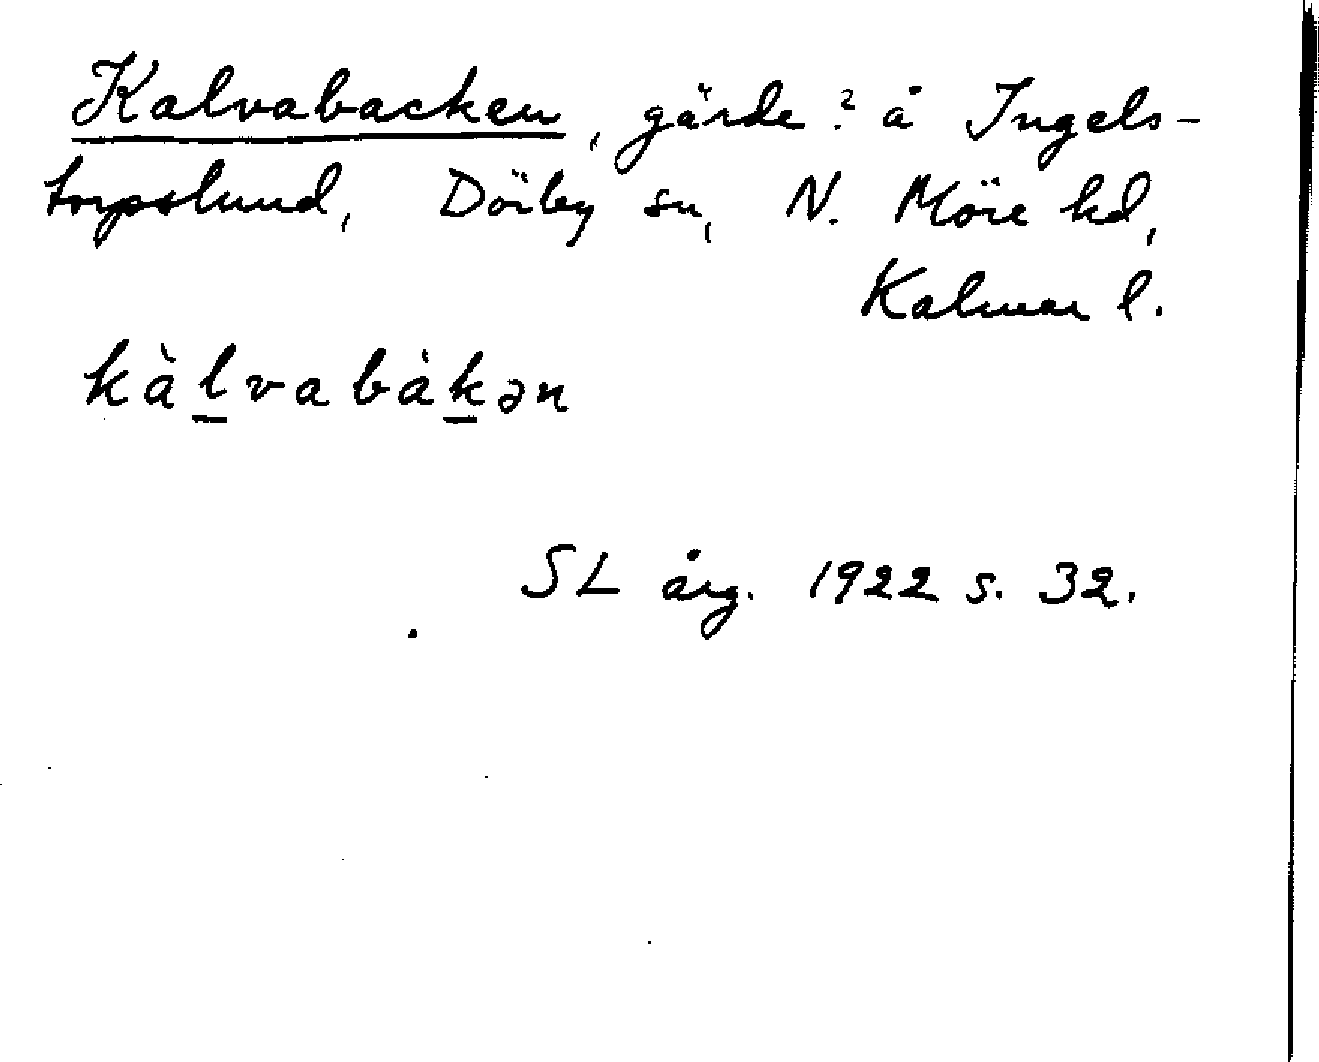 Kalvabacken, gärde? å Ingels-
torpslund, Dörby sn, N. Möre hd,
Kalmar l.
kàl̲vabàk̲ən
SL årg. 1922 s. 32.